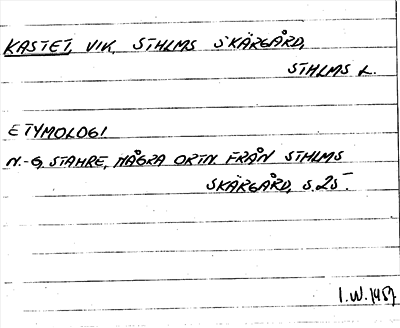 KASTET, VIK, STHLMS SKÄRGÅRD,
STHLMS L.
ETYMOLOGI
N.-G. STAHRE, NÅGRA ORTN FRÅN STHLMS
SKÄRGÅRD, S. 25.
I.W. 1957